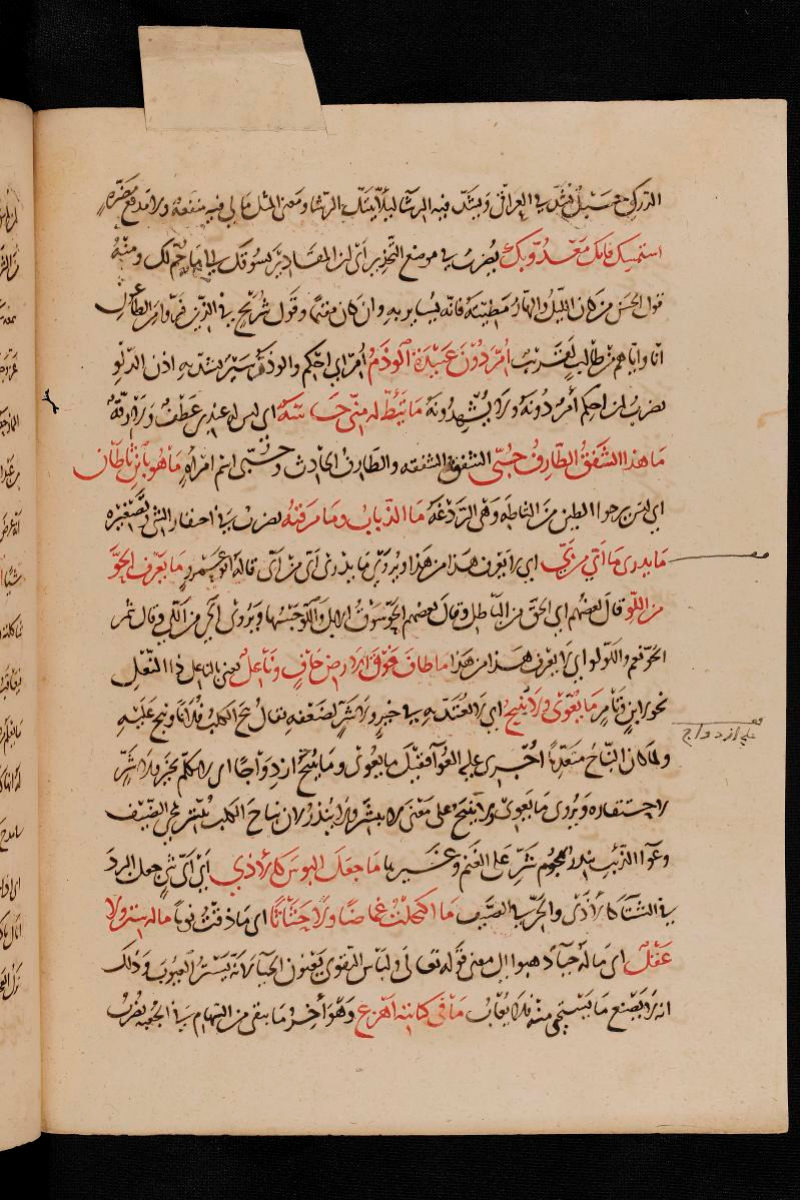 الدرك حبل في العراقي ويشد فيه الرشا ليلا يبتل الرشا ومعنى المثل ما لي فيه منفعة ولا مدفع مضرة
استمسك فانك معدو بك يضرب في موضع التحذير اي ان المقادير تسوقك الى ما حم لك ومنه
قول الحسن من كان الليل والنهار مطيته فانه يسار به وان كان مقيما وقول شريح في الذين فروا من الطاعون
انا واياهم من طالب لقريب امر دون عبيدة الوذم امر اي احكم والوذم سير يشد به اذن الدلو
يضرب لمن احكم امر دونه ولا يشهدونه ما تئط له مني حاسة اي ليس له عندي عطف ولا رقة
ما هذا الشفق الطارف حبي الشفق الشفقة والطارف الحادث وحبى اسم امراة ما هو بابن ثاطان
اي ليس برخو الطين من الثاطة وهي الردغة ما الذباب وما مرقته يضرب في احتقار الشي وتصغيره
ما يدري ما ابي من بني اي لا يعرف هذا من هذا ويروى ما يدري اي من اي قاله ابو عمرو ما يعرف الحو
من اللو قال بعضهم اي الحق من الباطل وقال بعضهم الحو سوق الابل واللو حبسها ويروى الحي من اللي وقال شمر
الحو نعم واللو لو اي لا يعرف هذا من هذا ما طاف فوق الارض حاف وناعل يعني بالناعل ذا النعل
نحو لابن وتامر ما يعوى ولا ينبح اي لا يعتد به في خير ولا شر لضعفه يقال نبح الكلب فلانا ونبح عليه
ولما كان النباح متعديا اجري عليه العوا فقيل ما يعوى وما ينبح ازدواجا اي لا يكلم بخير ولا شر
لاحتقاره ويروى ما يعوي ولا ينبح على معنى لا يبشر ولا ينذر لان نباح الكلب يبشر بمجي الضيف
وعوا الذيب ينذر بهجوم شره على الغنم وغيرها ما جعل البوس كالاذى اي اي شي جعل البرد
في الشتا كالاذى والحر في الصيف ما اكتحلت غماضا ولا حثاثا اي ما ذقت نوما ما له ستر ولا
عقل اي ما له حيا ذهبوا الى معنى قوله تعالى ولباس التقوى يعنون الحيا لانه يستر العيوب وذلك
انه لا يصنع ما يستحيي منه فلا يعاب ما في كنانته اهزع وهو اخر ما يبقى من السهام في الجعبة يضرب
على ازدواج